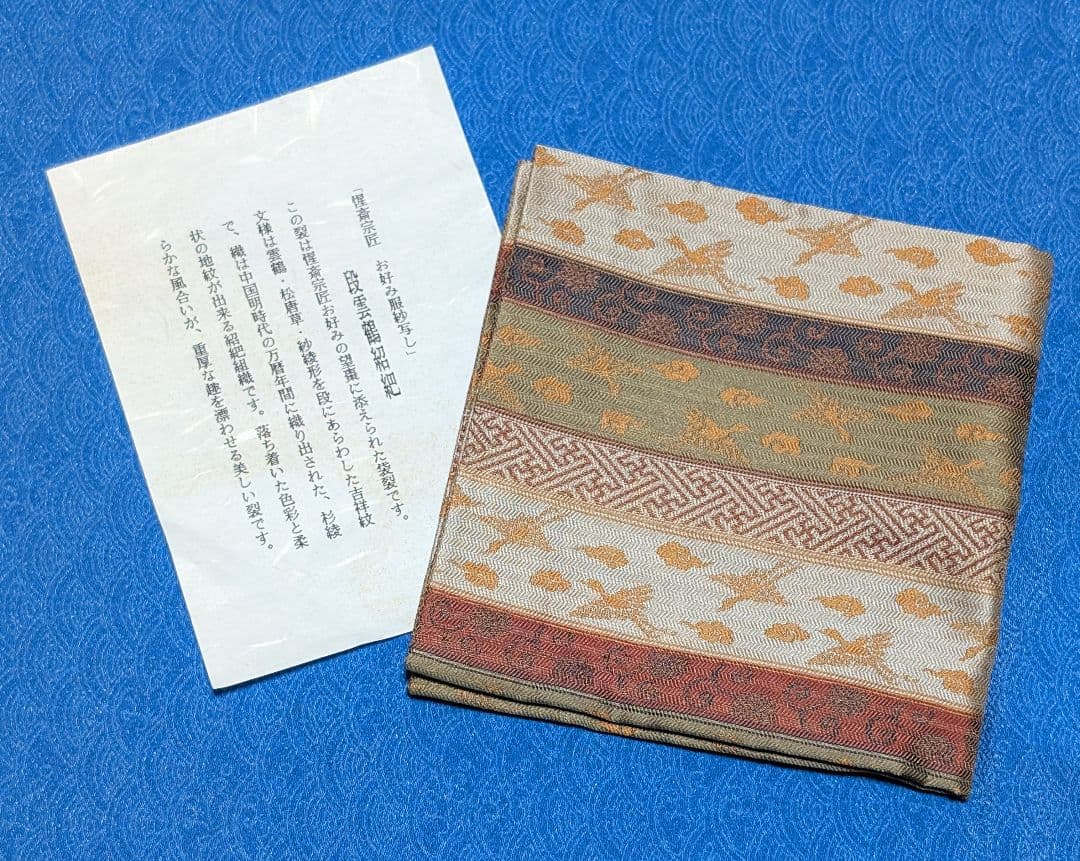 「惺斎宗匠　お好み服紗写し」
段雲鶴紹紦
この裂は惺斎宗匠お好みの望棗に添えられた袋裂です。
文様は雲鶴・松唐草・紗綾形を段にあらわした吉祥紋
で、織は中国明時代の万暦年間に織り出された、杉綾
状の地紋が出来る紹紦組織です。落ち着いた色彩と柔
らかな風合いが、重厚な趣を漂わせる美しい裂です。